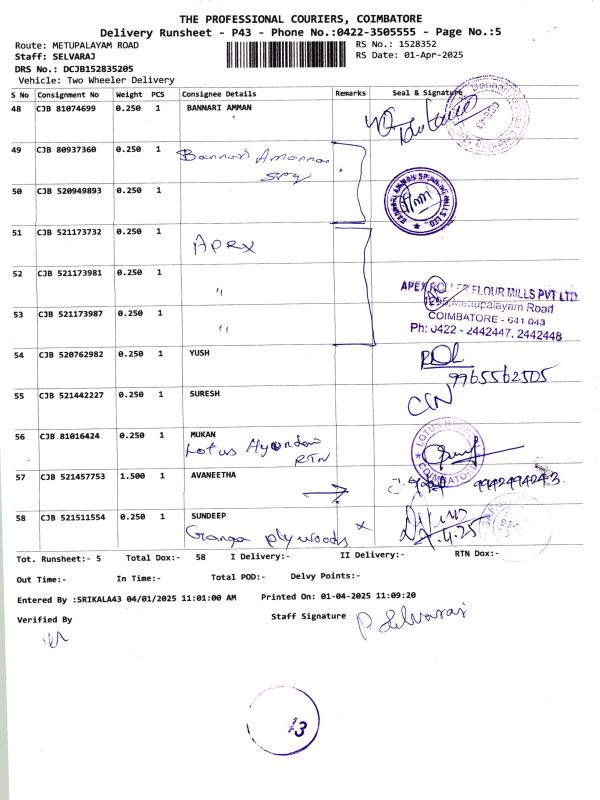 THE PROFESSIONAL COURIERS, COIMBATORE
Delivery Runsheet - P43 - Phone No.:0422-3505555 - Page No.:5
Route: METUPALAYAM ROAD
RS No.: 1528352
Staff: SELVARAJ
RS Date: 01-Apr-2025
DRS No.: DCJB152835205
Vehicle: Two Wheeler Delivery
S No Consignment No Weight PCS Consignee Details Remarks Seal & Signature
48 CJB 81074699 0.250 1 BANNARI AMMAN
49 CJB 80937360 0.250 1 Bannari Amman
50 CJB 520949893 0.250 1
BANNARI AMMAN SPINNING MILLS LTD.
51 CJB 521173732 0.250 1 APEX
52 CJB 521173981 0.250 1 "
APEX ROLLER FLOUR MILLS PVT LTD
1295, Mettupalayam Road
COIMBATORE - 641 043
Ph: 0422 - 2442447, 2442448
53 CJB 521173987 0.250 1 "
54 CJB 520762982 0.250 1 YUSH
9965562505
55 CJB 521442227 0.250 1 SURESH
56 CJB 81016424 0.250 1 MUKAN
Lotus Hyundai
RTN
COIMBATORE
57 CJB 521457753 1.500 1 AVANEETHA
9942494243
58 CJB 521511554 0.250 1 SUNDEEP
Ganga plywoods x
Tot. Runsheet:- 5 Total Dox:- 58 I Delivery:- II Delivery:- RTN Dox:-
Out Time:- In Time:- Total POD:- Delvy Points:-
Entered By :SRIKALA43 04/01/2025 11:01:00 AM Printed On: 01-04-2025 11:09:20
Verified By
Staff Signature P. Selvaraj
13